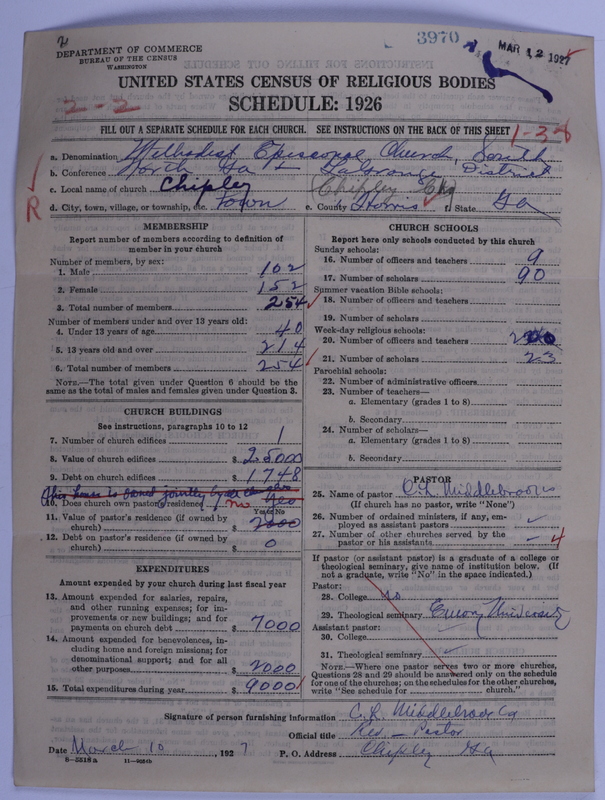 2
DEPARTMENT OF COMMERCE
BUREAU OF THE CENSUS
WASHINGTON
3970
MAR 12 1927
UNITED STATES CENSUS OF RELIGIOUS BODIES
SCHEDULE: 1926
2-2
FILL OUT A SEPARATE SCHEDULE FOR EACH CHURCH. SEE INSTRUCTIONS ON THE BACK OF THIS SHEET
1-38
a. Denomination Methodist Episcopal Church, South
b. Conference North Ga + LaGrange District
c. Local name of church Chipley (Chipley Chg
d. City, town, village, or township, etc. Town e. County Harris f. State Ga
R
MEMBERSHIP
Report number of members according to definition of member in your church
Number of members, by sex:
1. Male 102
2. Female 152
3. Total number of members 254
Number of members under and over 13 years old:
4. Under 13 years of age 40
5. 13 years old and over 214
6. Total number of members 254
NOTE.—The total given under Question 6 should be the same as the total of males and females given under Question 3.
CHURCH BUILDINGS
See instructions, paragraphs 10 to 12
7. Number of church edifices 1
8. Value of church edifices $ 25000
9. Debt on church edifices $ 1748
This house is owned jointly by
10. Does church own pastor's residence? no Yes
Yes or No
11. Value of pastor's residence (if owned by church) $ 2000
12. Debt on pastor's residence (if owned by church) $ 0
EXPENDITURES
Amount expended by your church during last fiscal year
13. Amount expended for salaries, repairs, and other running expenses; for improvements or new buildings; and for payments on church debt $ 7000
14. Amount expended for benevolences, including home and foreign missions; for denominational support; and for all other purposes $ 2000
15. Total expenditures during year $ 9000
CHURCH SCHOOLS
Report here only schools conducted by this church
Sunday schools:
16. Number of officers and teachers 9
17. Number of scholars 90
Summer vacation Bible schools:
18. Number of officers and teachers
19. Number of scholars
Week-day religious schools:
20. Number of officers and teachers
21. Number of scholars 23
Parochial schools:
22. Number of administrative officers
23. Number of teachers—
a. Elementary (grades 1 to 8)
b. Secondary
24. Number of scholars—
a. Elementary (grades 1 to 8)
b. Secondary
PASTOR
25. Name of pastor C. L. Middlebrooks
(If church has no pastor, write "None")
26. Number of ordained ministers, if any, employed as assistant pastors
27. Number of other churches served by the pastor or his assistants 4
If pastor (or assistant pastor) is a graduate of a college or theological seminary, give name of institution below. (If not a graduate, write "No" in the space indicated.)
Pastor:
28. College No
29. Theological seminary Emory University
Assistant pastor:
30. College
31. Theological seminary
NOTE.—Where one pastor serves two or more churches, Questions 28 and 29 should be answered only on the schedule for one of the churches; on the schedules for the other churches, write "See schedule for church."
Signature of person furnishing information C. L. Middlebrooks
Official title Rev — Pastor
Date March 10, 1927 P. O. Address Chipley Ga
8-5518a 11-9254b